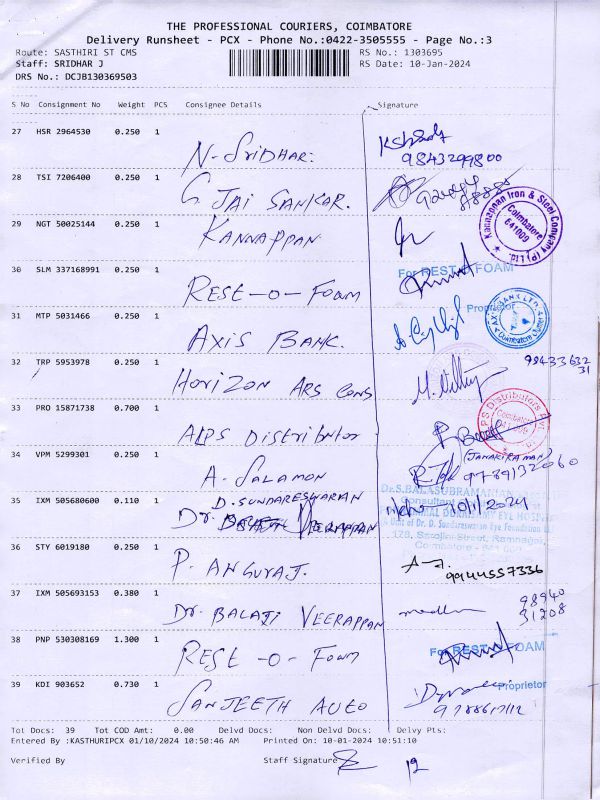 THE PROFESSIONAL COURIERS, COIMBATORE
Delivery Runsheet - PCX - Phone No.:0422-3505555 - Page No.:3
Route: SASTHIRI ST CMS RS No.: 1303695
Staff: SRIDHAR J RS Date: 10-Jan-2024
DRS No.: DCJB130369503
S No Consignment No Weight PCS Consignee Details Signature
27 HSR 2964530 0.250 1
N-SRIDHAR. 9843299800
28 TSI 7206400 0.250 1
G JAI SANKAR.
29 NGT 50025144 0.250 1
KANNAPPAN
Kannappan Iron & Steel Company (P) Ltd.
Coimbatore
641009
30 SLM 337168991 0.250 1 For REST-O-FOAM
REST-O-FOAM
Proprietor
31 MTP 5031466 0.250 1
AXIS BANK.
AXIS BANK LTD
32 TRP 5953978 0.250 1
HORIZON ARS CONS
33 PRO 15871738 0.700 1
ALPS DISTRIBUTOR
34 VPM 5299301 0.250 1 (JANAKIRAMAN)
A. SALAMON 9789132060
35 IXM 505680600 0.110 1 Dr.S.BALASUBRAMANIAN
D. SUNDARESWARAN 10/1/2024
DR. VEERAPPAN
Unit of Dr. D. Sundareswaran Eye Foundation
128, Sarojini Street, Ramnagar,
Coimbatore - 641
36 STY 6019180 0.250 1
P. ANGURAJ. 9944557336
37 IXM 505693153 0.380 1 98940
DR BALAJI VEERAPPAN 31208
38 PNP 530308169 1.300 1 For REST-O-FOAM
REST-O-FOAM
39 KDI 903652 0.730 1 Proprietor
SANJEETH AUTO
Tot Docs: 39 Tot COD Amt: 0.00 Delvd Docs: Non Delvd Docs: Delvy Pts:
Entered By :KASTHURIPCX 01/10/2024 10:50:46 AM Printed On: 10-01-2024 10:51:10
Verified By Staff Signature